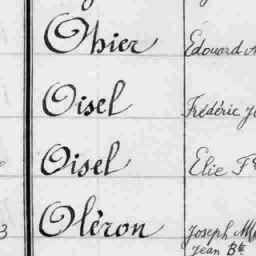 Ohier Édouard
Oisel Frédéric
Oisel Elie F
Oléron Joseph
Jean Bte